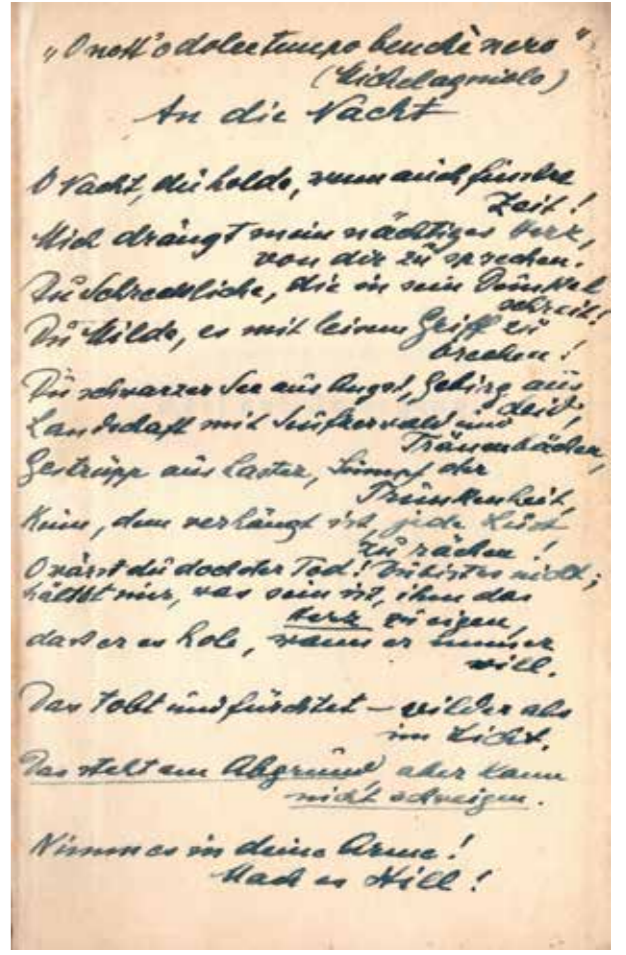 „O nott'o dolce tempo benchè nero"
(Michelagniolo)
An die Nacht
O Nacht, du holde, wenn auch finstre
Zeit!
Mich drängt mein nächtiges Herz,
von dir zu sprechen.
Du Schreckliche, die in sein Dunkel
schreit!
Du Milde, es mit leisem Griff zu
brechen!
Du schwarzer See aus Angst, Gebirg aus
Leid,
Landschaft mit Seufzerwald und
Tränenbächen,
Gestrüpp aus Laster, Sumpf der
Trunkenheit,
dem verhängt ist, jede Lust
zu rächen!
O wärst du doch der Tod! Du bist es nicht;
hältst nur, was sein ist, ihm das
Herz zu eigen,
dass er es hole, wann er immer
will.
Das tobt und fürchtet – wilder als
im Licht.
Das steht am Abgrund aber kann
nicht schweigen.
Nimm es in deine Arme!
Mach es still!